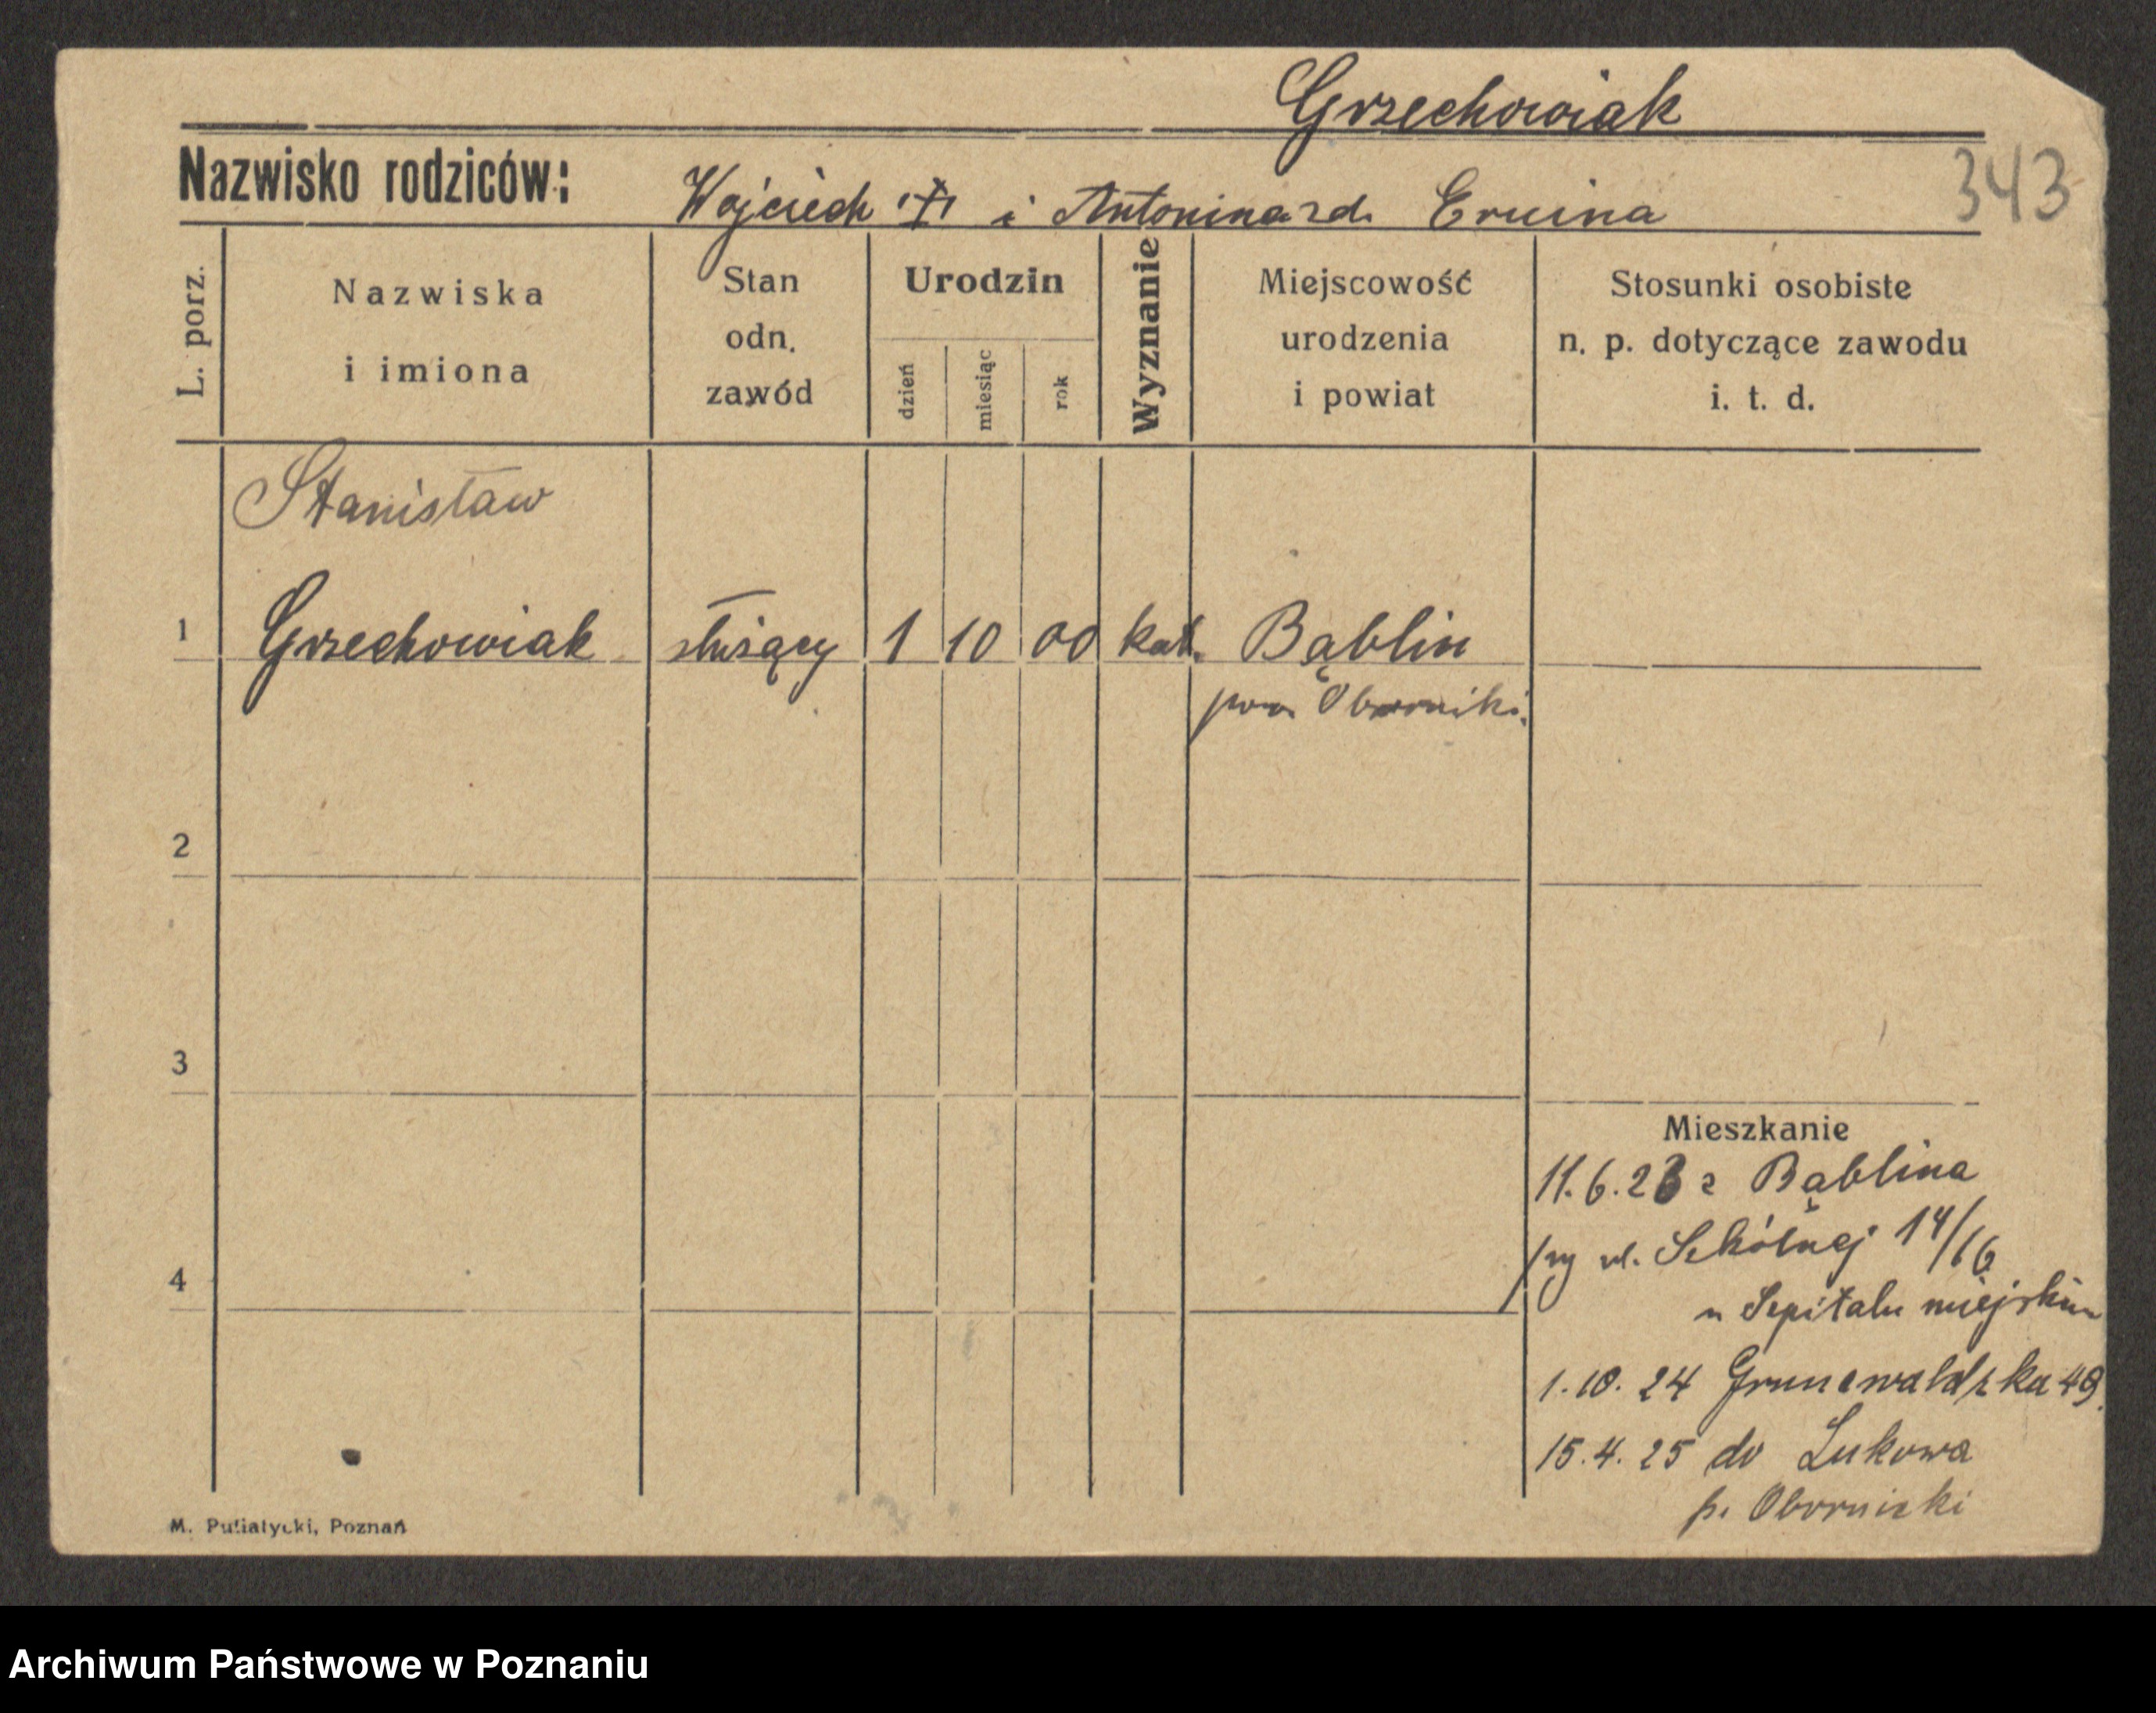 Grzechowiak
343
Nazwisko rodziców:
Wojciech '+' i Antonina zd.
L. porz.
Nazwiska
i imiona
Stan
odn.
zawód
Urodzin
dzień
miesiąc
rok
Wyznanie
Miejscowość
urodzenia
i powiat
Stosunki osobiste
n. p. dotyczące zawodu
i. t. d.
Stanisław
1 Grzechowiak służący 1 10 00 kat. Bąblin
pow. Oborniki.
2
3
4
Mieszkanie
11.6.23 z Bąblina
przy ul. Szkólnej 14/16
w Szpitalu miejskim
1.10.24 Grunwaldzka 49.
15.4.25 do Łukowa
p. Obornicki
M. Putiatycki, Poznań
Archiwum Państwowe w Poznaniu